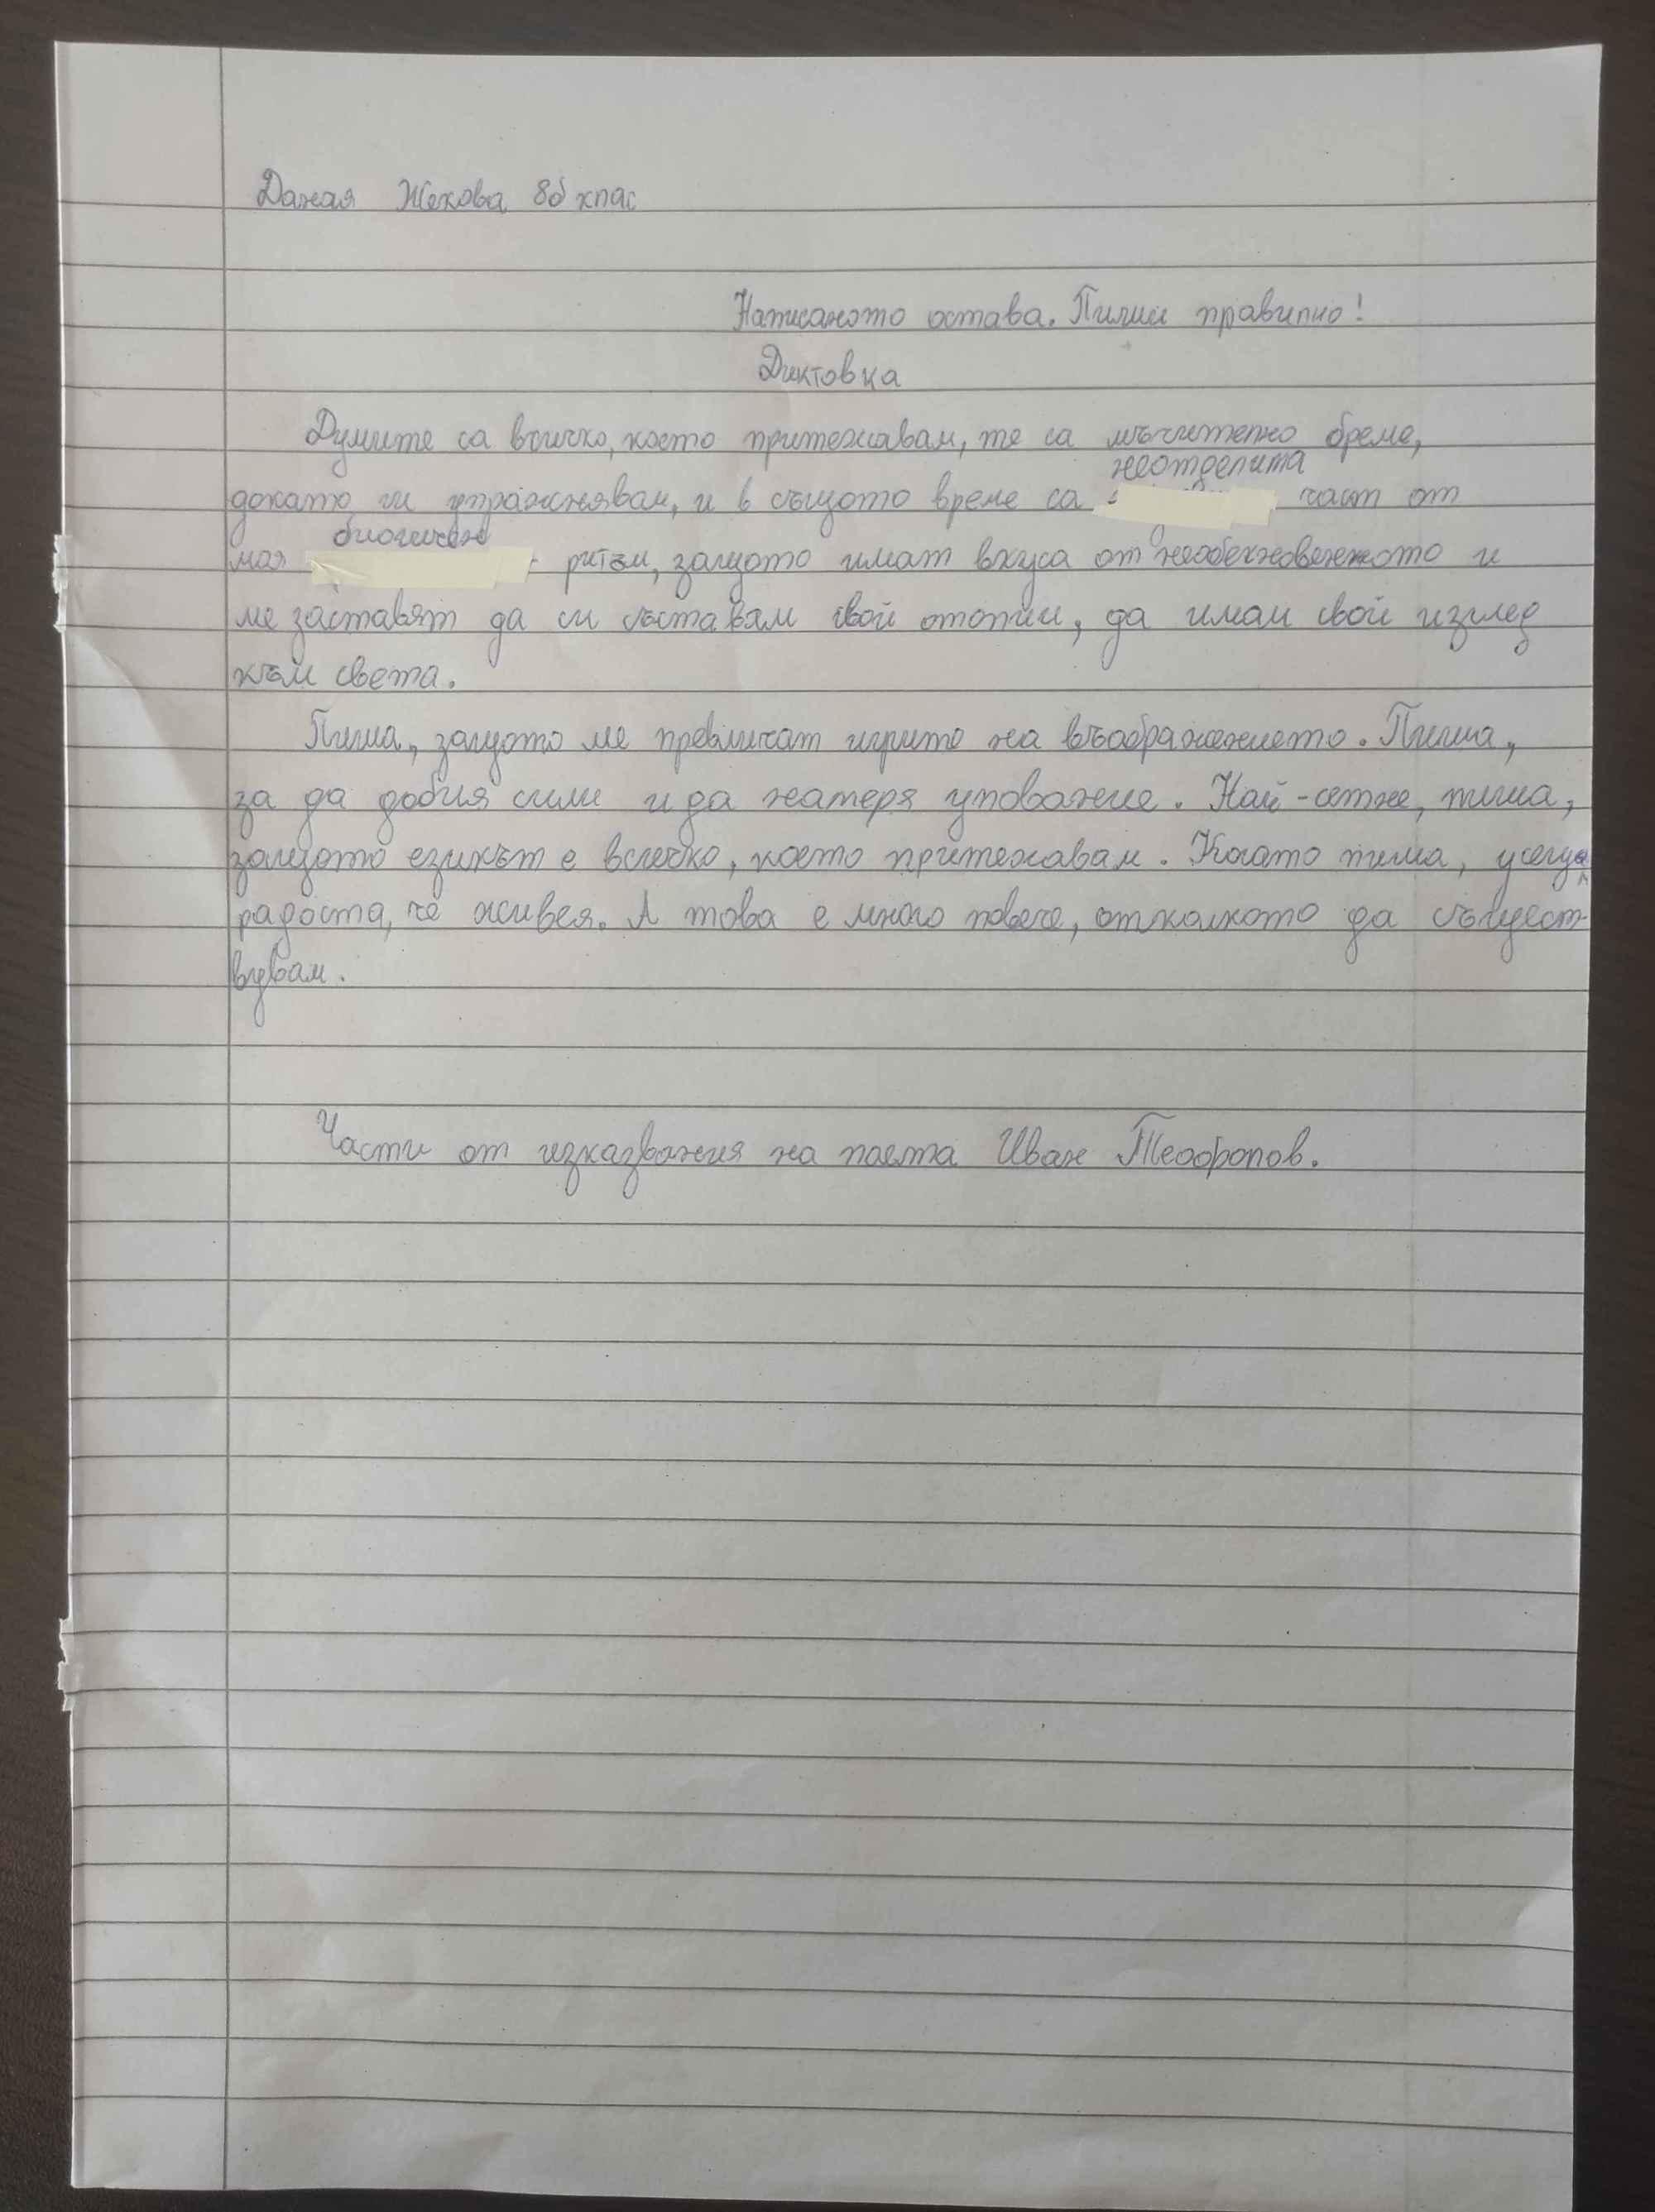 Даная Жекова 8б клас
Написаното остава. Пиши правилно!
Диктовка
Думите са всичко, което притежавам, те са мъчително бреме,
неотделита
докато ги упражнявам, и в същото време са част от
биогичен
моя ритъм, защото имат вкуса от необекновенното и
ме заставят да си съставям свой отопии, да имам свой изглед
към света.
Пиша, защото ме превличат игрите на въображението. Пиша,
за да добия сили и да намеря упование. Най-сетне, пиша,
защото езикът е всичко, което притежавам. Когато пиша, усеща
радоста, че живея. А това е много повече, отколкото да същест-
вувам.
Части от изказвания на поета Иван Теофилов.